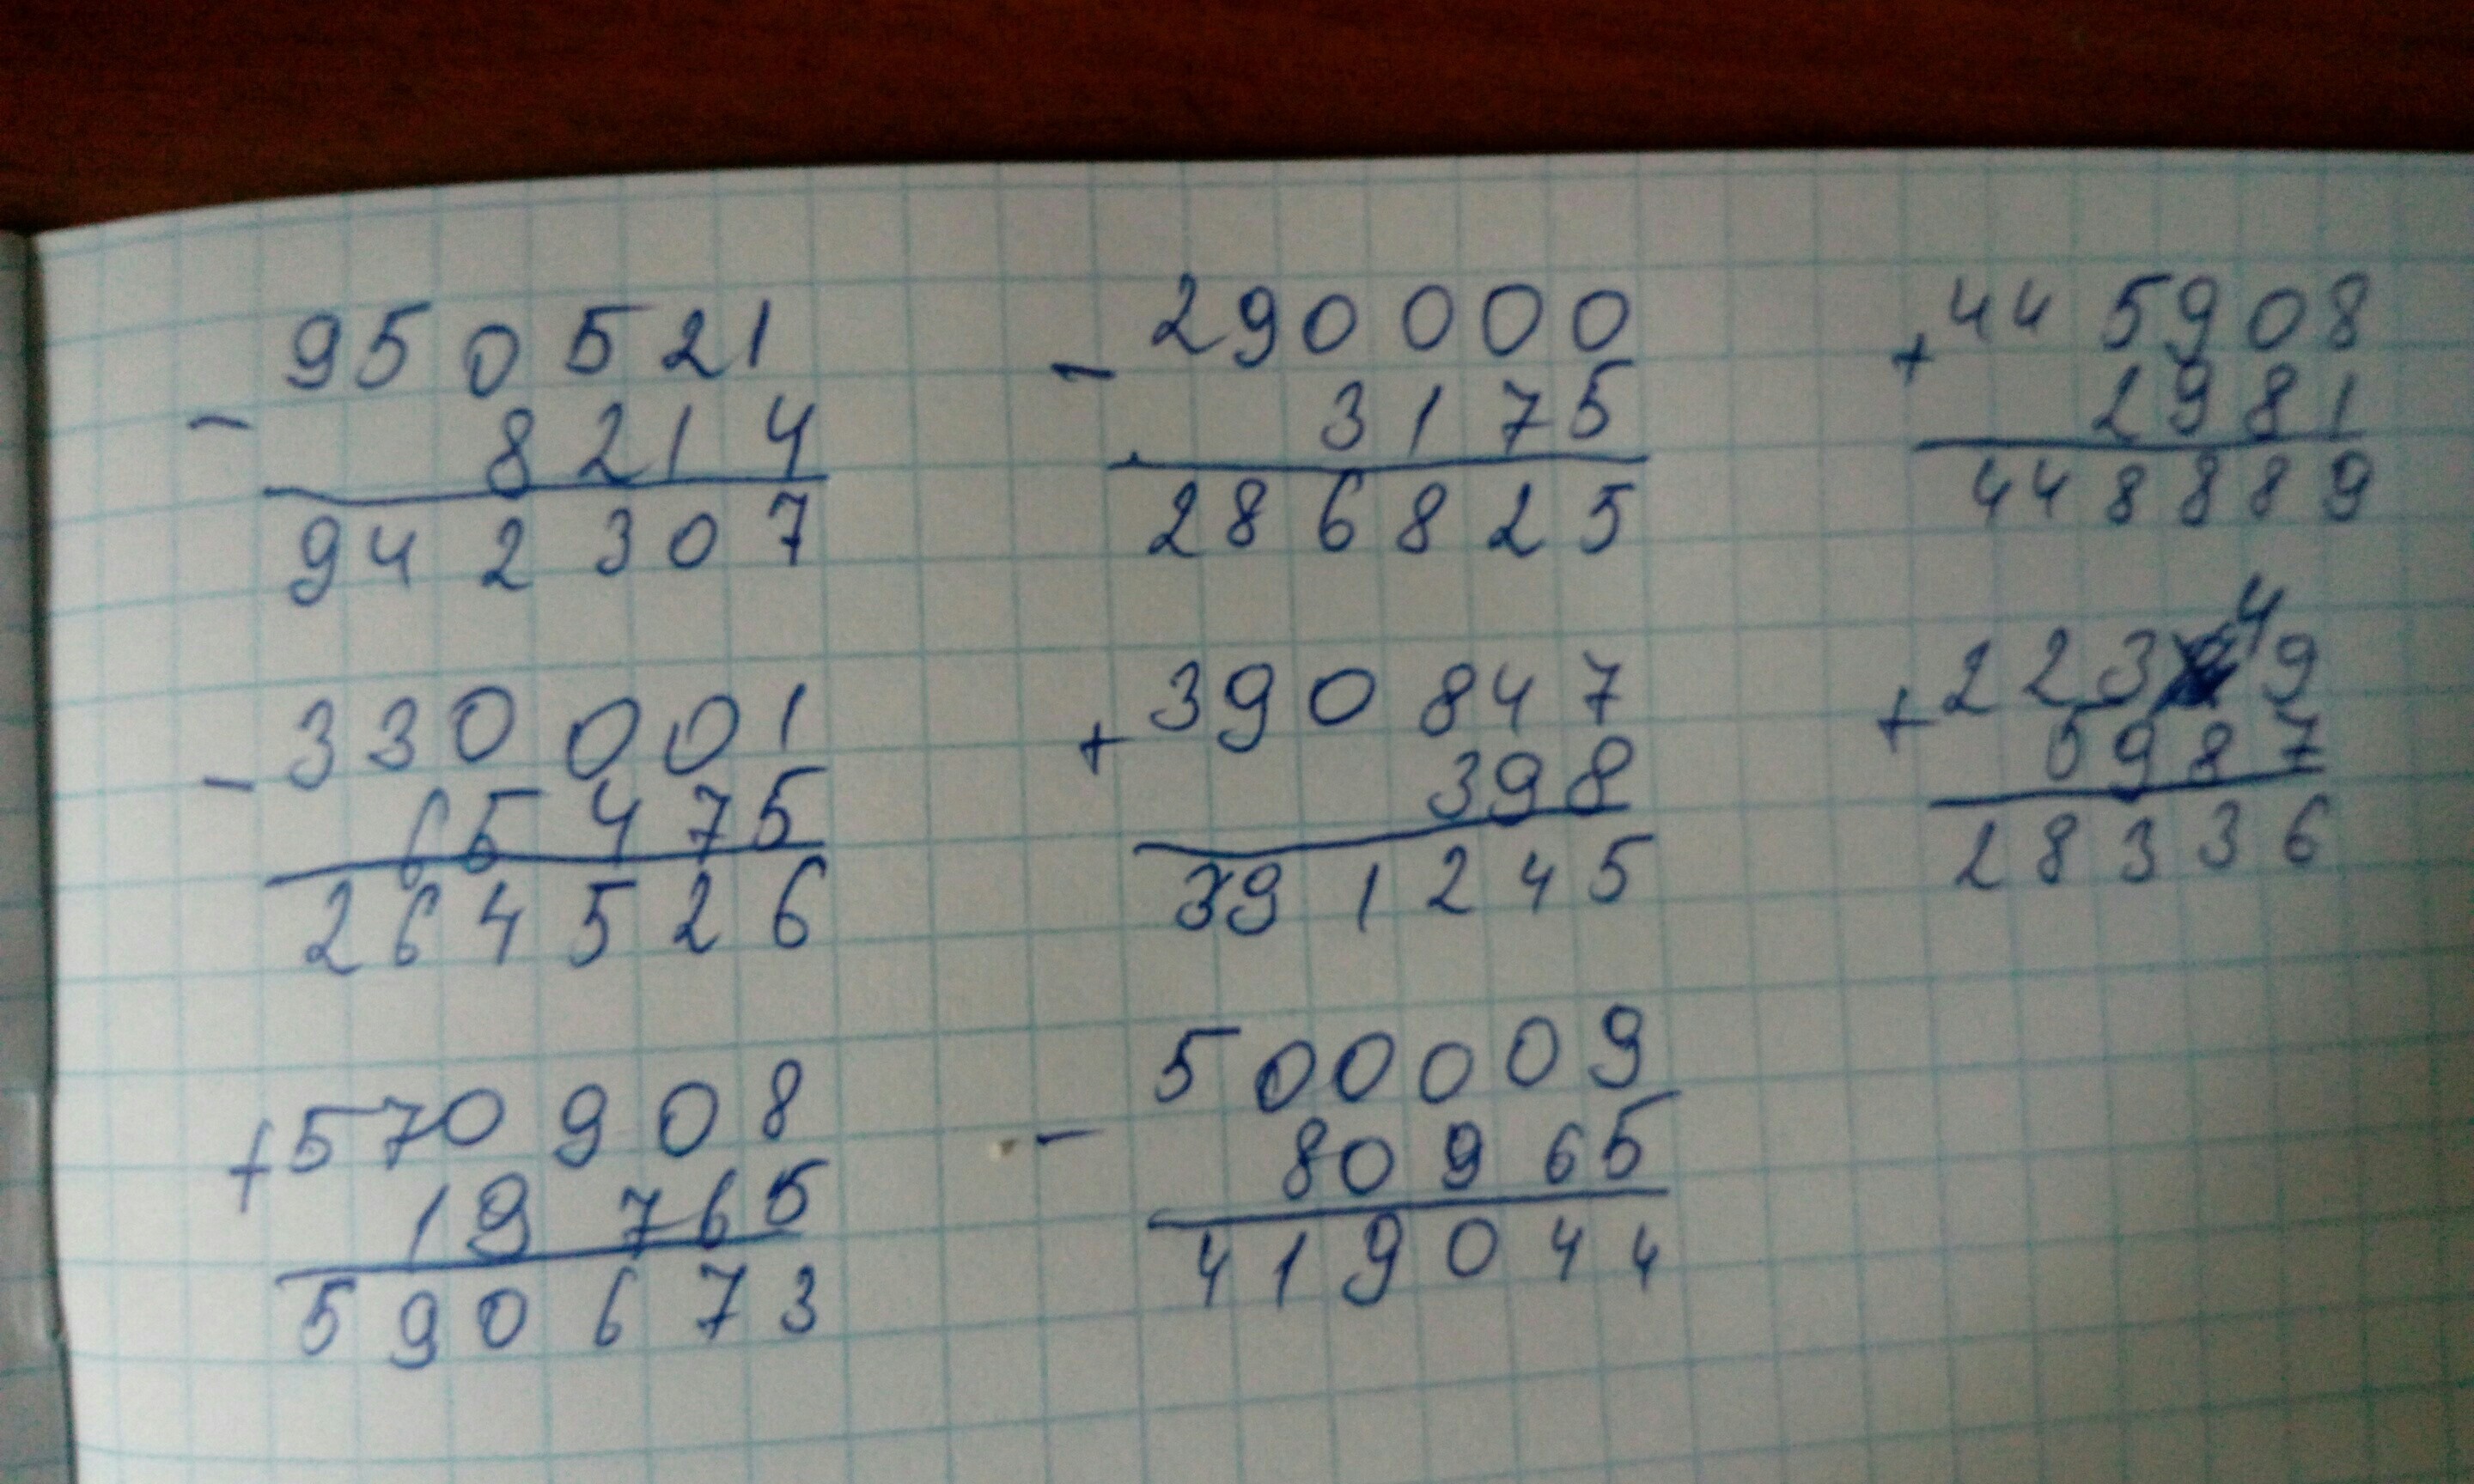 950521
-
8214
942307
290000
-
3175
286825
445908
+
2981
448889
330001
-
65475
264526
390847
+
398
391245
22349
+
5987
28336
570908
+
19765
590673
500009
-
80965
419044